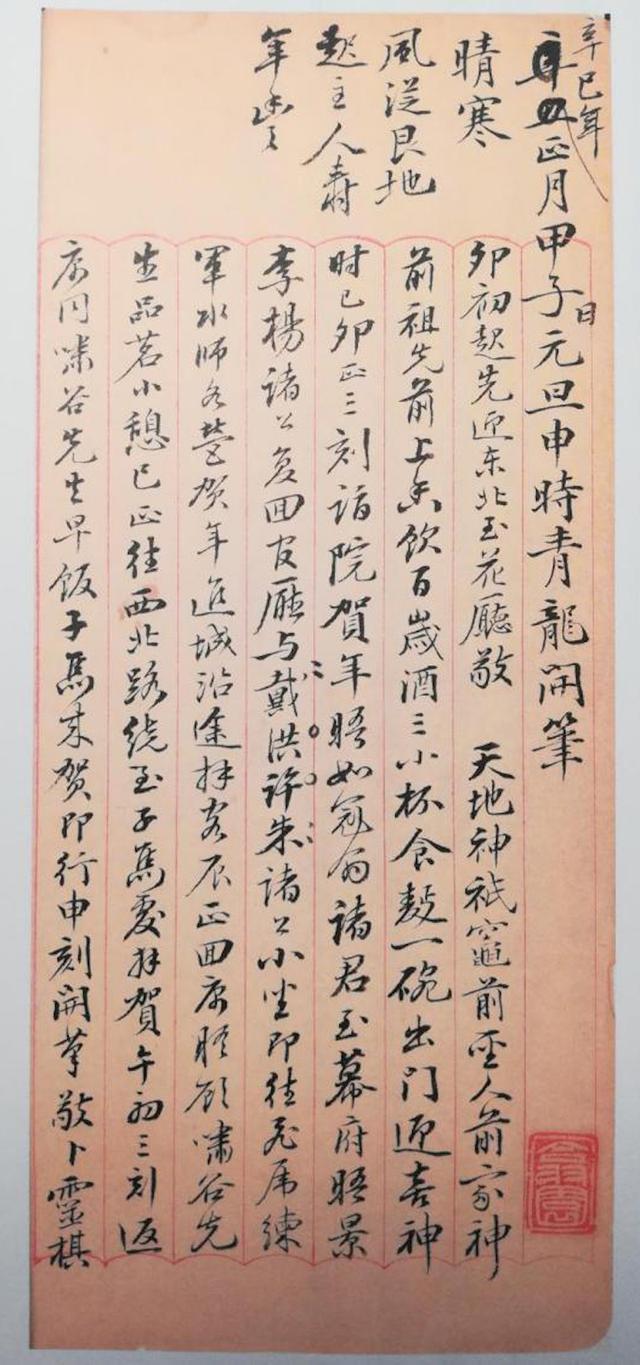 辛巳年
正月甲子日元旦申時青龍開筆
晴寒
風從艮地
起主人壽
年豐
卯初起先迎东北至花廳敬 天地神祇竈前聖人前家神
前祖先前上香飲百歲酒三小杯食麫一碗出門迎喜神
时已卯正三刻詣院賀年晤如冠翁諸君至幕府晤景
李楊諸公复回官廳与戴洪許朱諸公小坐即往虎席練
軍水師各營贺年進城沿途拜客辰正回寓晤顧嘯谷先
生品茗小憩巳正往西北路绕至子馬處拜賀午初三刻返
寓同嘯谷先生早飯子馬来贺即行申刻開筆敬卜靈棋